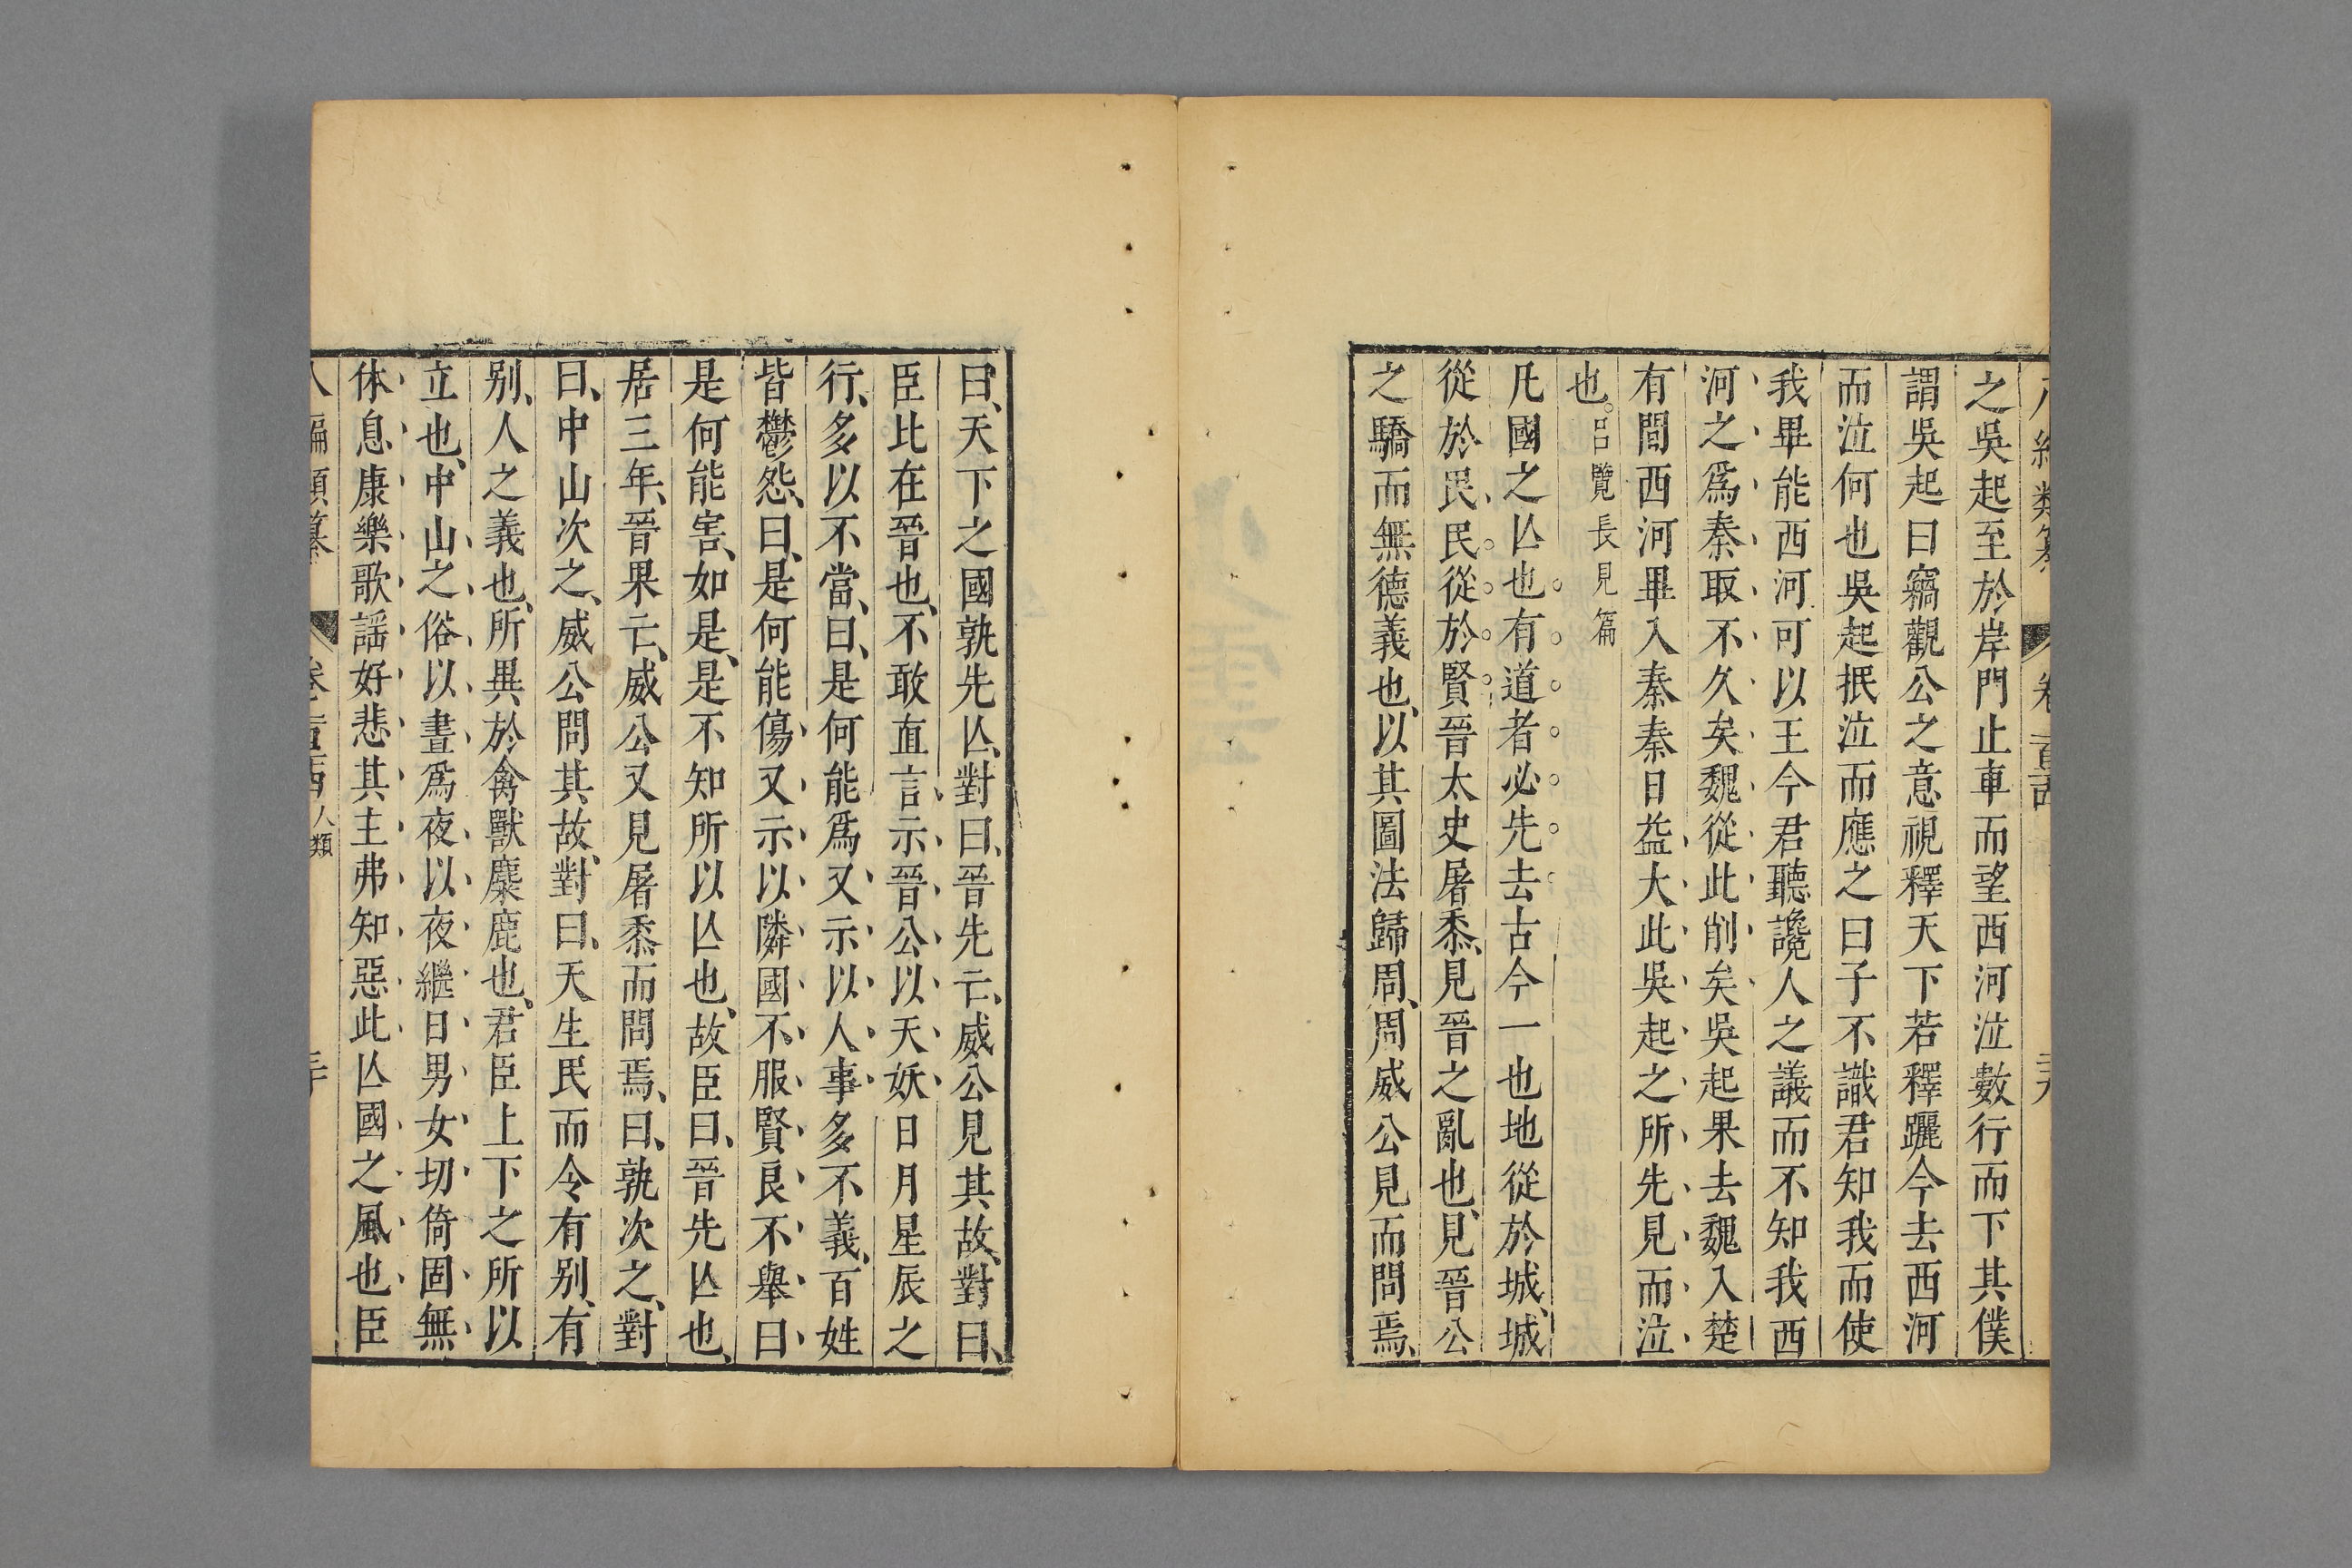 之吳起至於岸門止車而望西河泣數行而下其僕
謂吳起曰竊觀公之意視釋天下若釋躧今去西河
而泣何也吳起抿泣而應之曰子不識君知我而使
我畢能西河可以王今君聽讒人之議而不知我西
河之爲秦取不久矣魏從此削矣吳起果去魏入楚
有間西河畢入秦秦日益大此吳起之所先見而泣
也。呂覽長見篇
凡國之亾也有道者必先去古今一也地從於城、城
從於民、民從於賢晉太史屠黍、見晉之亂也、見晉公
之驕而無德義也、以其圖法歸周、周威公見而問焉、
曰、天下之國孰先亾、對曰、晉先亡、威公見其故、對曰、
臣比在晉也、不敢直言示晉公以天妖日月星辰之
行、多以不當、曰、是何能爲又示以人事多不義、百姓
皆鬱怨、曰、是何能傷又示以隣國不服賢良不舉曰
是何能害、如是、是不知所以亾也、故臣曰、晉先亾也、
居三年、晉果亡、威公又見屠黍而問焉、曰、孰次之、對
曰、中山次之、威公問其故、對曰、天生民而令有别、有
别、人之義也、所異於禽獸麋鹿也、君臣上下之所以
立也、中山之俗以晝爲夜以夜繼日男女切倚固無
休息康樂歌謡好悲其主弗知惡此亾國之風也臣
人類